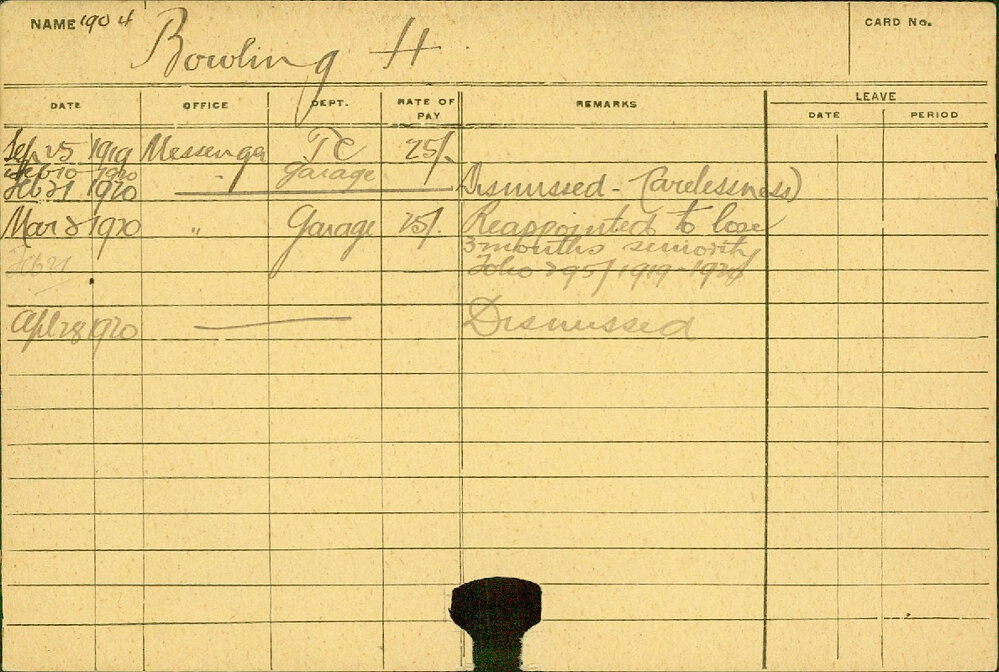 NAME 1904 Bowling H CARD No.
DATE OFFICE DEPT. RATE OF PAY REMARKS LEAVE
DATE PERIOD
Sep 25 1919 Messenger TC 25/-
Feb 10 1920 " Garage
Feb 21 1920 Dismissed - (Carelessness)
Mar 2 1920 " Garage 25/- Reappointed to lose
3 months seniority
Feb 21 Folio 295/1919-1920
Apl 28 1920 Dismissed